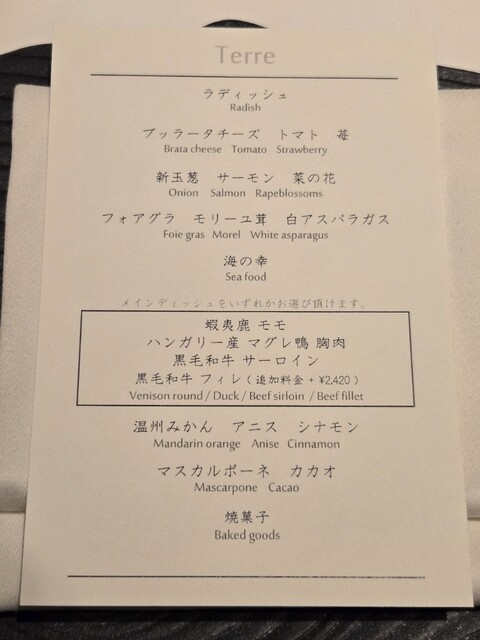 Terre
ラディッシュ
Radish
ブッラータチーズ トマト 苺
Brata cheese Tomato Strawberry
新玉葱 サーモン 菜の花
Onion Salmon Rapeblossoms
フォアグラ モリーユ茸 白アスパラガス
Foie gras Morel White asparagus
海の幸
Sea food
メインディッシュをいずれかお選び頂けます。
蝦夷鹿 モモ
ハンガリー産 マグレ鴨 胸肉
黒毛和牛 サーロイン
黒毛和牛 フィレ ( 追加料金 + ¥2,420 )
Venison round / Duck / Beef sirloin / Beef fillet
温州みかん アニス シナモン
Mandarin orange Anise Cinnamon
マスカルポーネ カカオ
Mascarpone Cacao
焼菓子
Baked goods